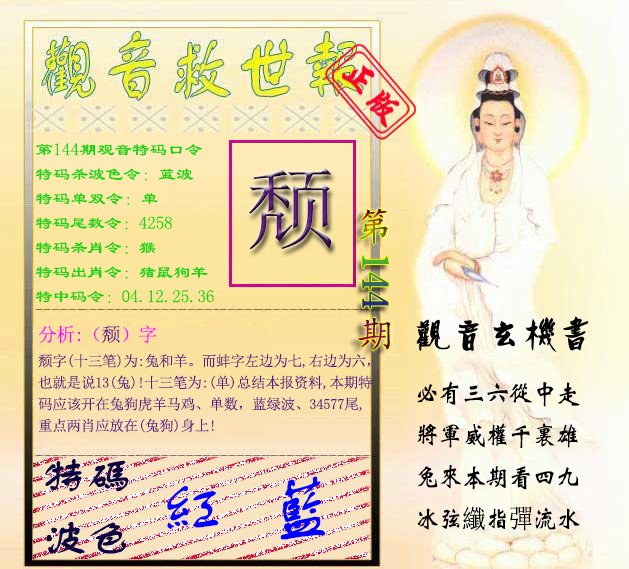 觀音救世報
正版
第144期观音特码口令
特码杀波色令：蓝波
特码单双令：单
特码尾数令：4258
特码杀肖令：猴
特码出肖令：猪鼠狗羊
特中码令：04.12.25.36
颓
第144期
分析:（颓）字
颓字(十三笔)为:兔和羊。而蚌字左边为七,右边为六,
也就是说13(兔)!十三笔为:(单)总结本报资料,本期特
码应该开在兔狗虎羊马鸡、单数，蓝绿波、34577尾,
重点两肖应放在(兔狗)身上!
特碼
波色
紅 藍
觀音玄機書
必有三六從中走
將軍威權千裏雄
兔來本期看四九
冰弦纖指彈流水